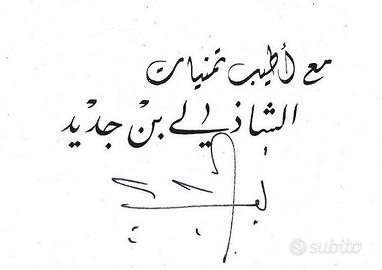 مع أطيب تمنيات
الشاذلي بن جديد
subito